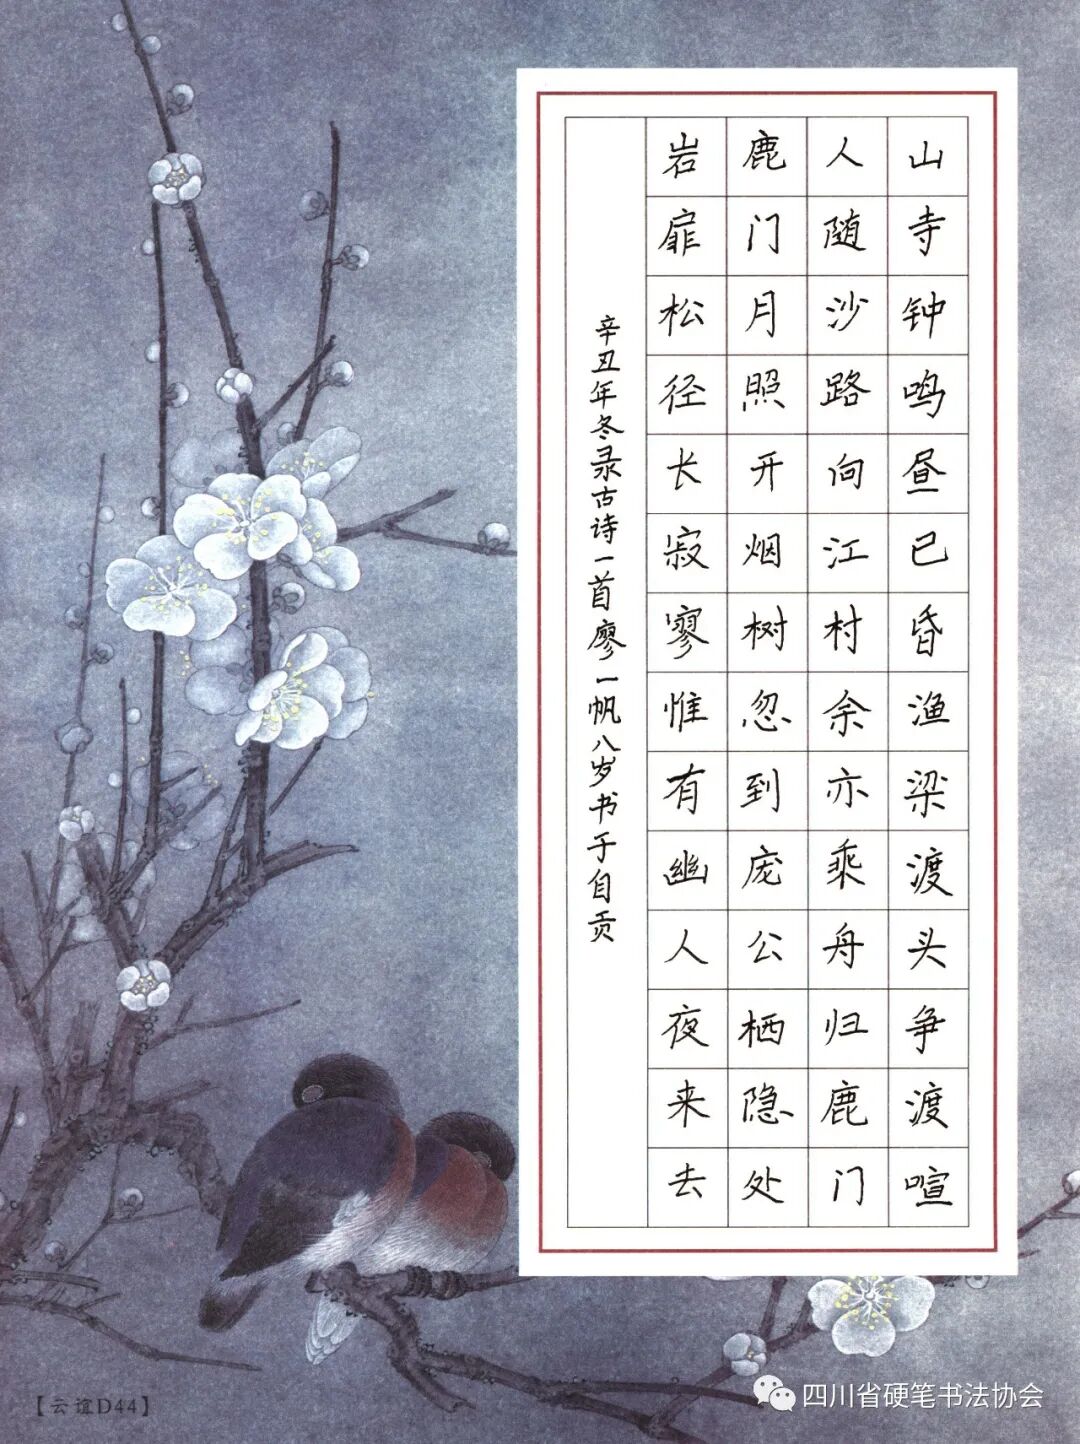 山寺钟鸣昼已昏渔梁渡头争渡喧
人随沙路向江村余亦乘舟归鹿门
鹿门月照开烟树忽到庞公栖隐处
岩扉松径长寂寥惟有幽人夜来去
辛丑年冬录古诗一首廖一帆八岁书于自贡
【云谊D44】
四川省硬笔书法协会